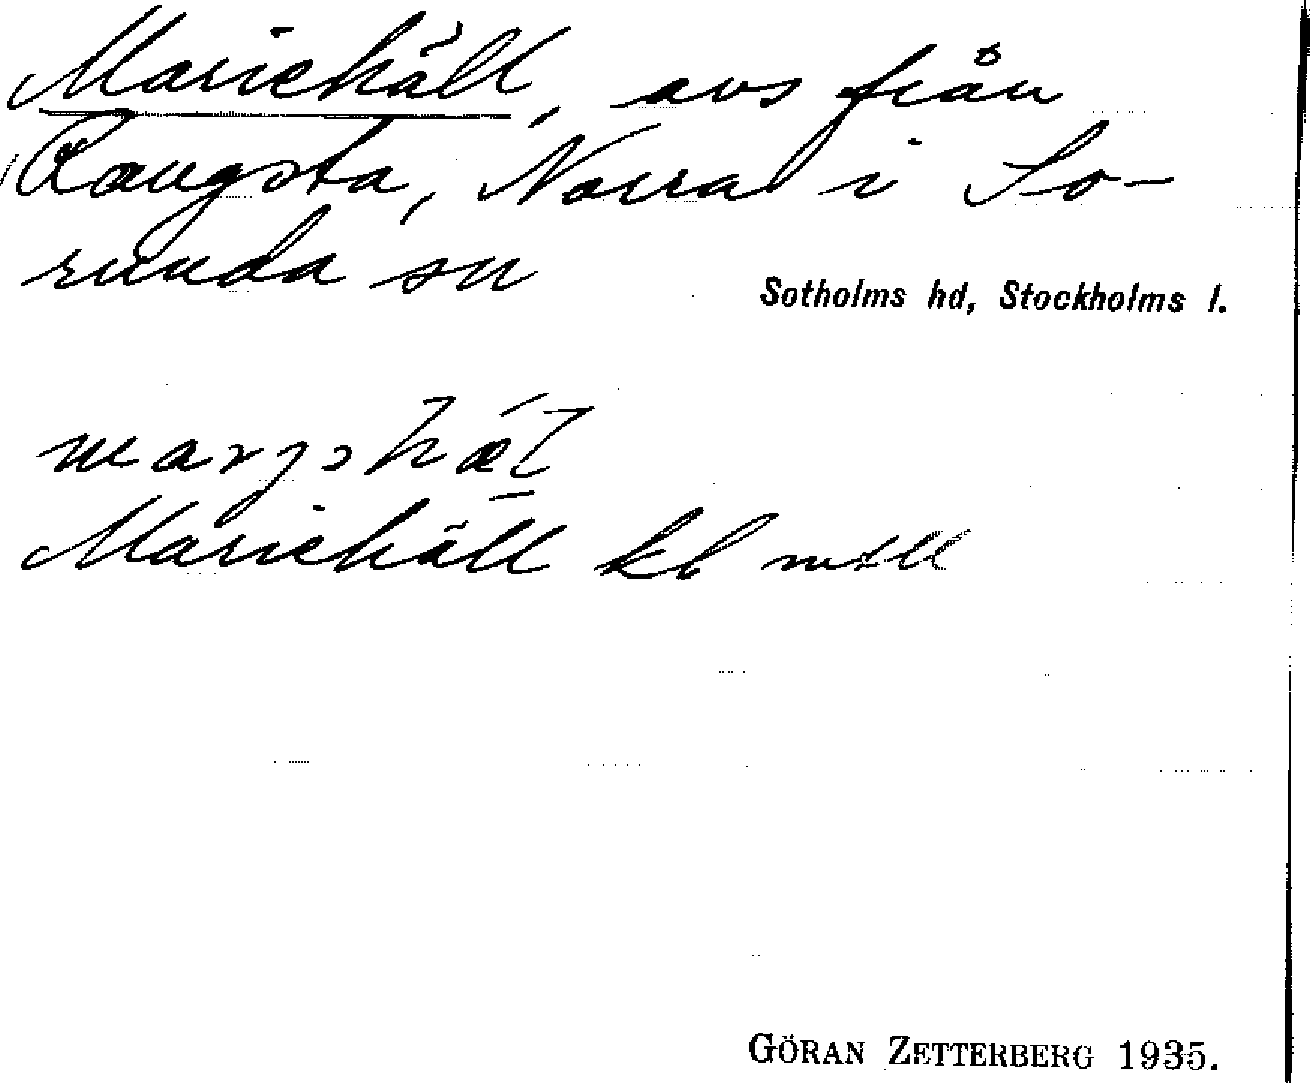 Mariehäll, avs från
Rangsta, Norra i So-
runda sn
Sotholms hd, Stockholms l.
marjəhæ̀l
Mariehäll kb mtll
GÖRAN ZETTERBERG 1935.